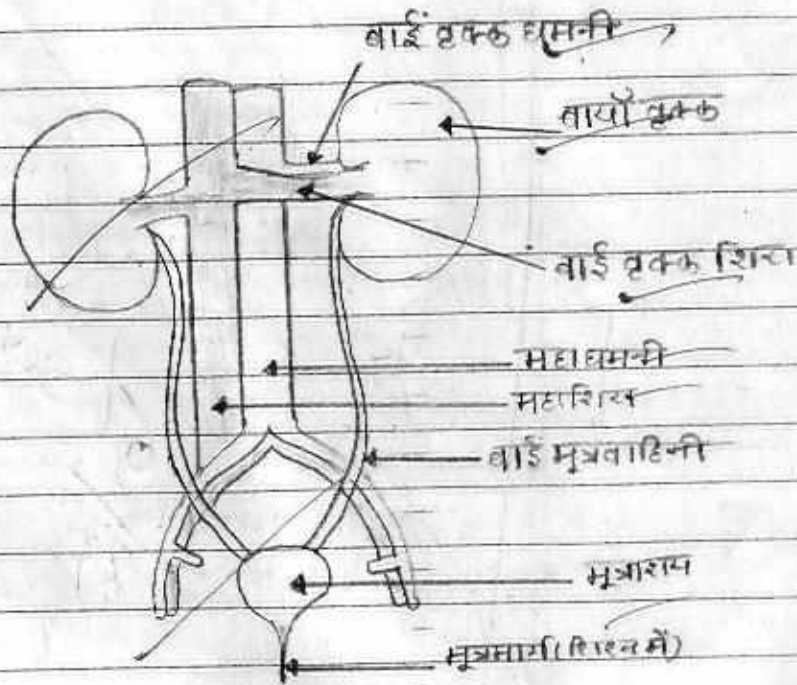 बाईं वृक्क धमनी
बायाँ वृक्क
बाईं वृक्क शिरा
महाधमनी
महाशिरा
बाईं मूत्रवाहिनी
मूत्राशय
मूत्रमार्ग (शिश्न में)